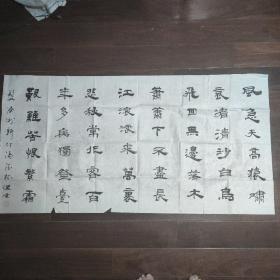 風急天高猿嘯
哀渚清沙白鳥
飛回無邊落木
蕭蕭下不盡長
江滾滾來萬裏
悲秋常作客百
年多病獨登臺
艱難苦恨繁霜